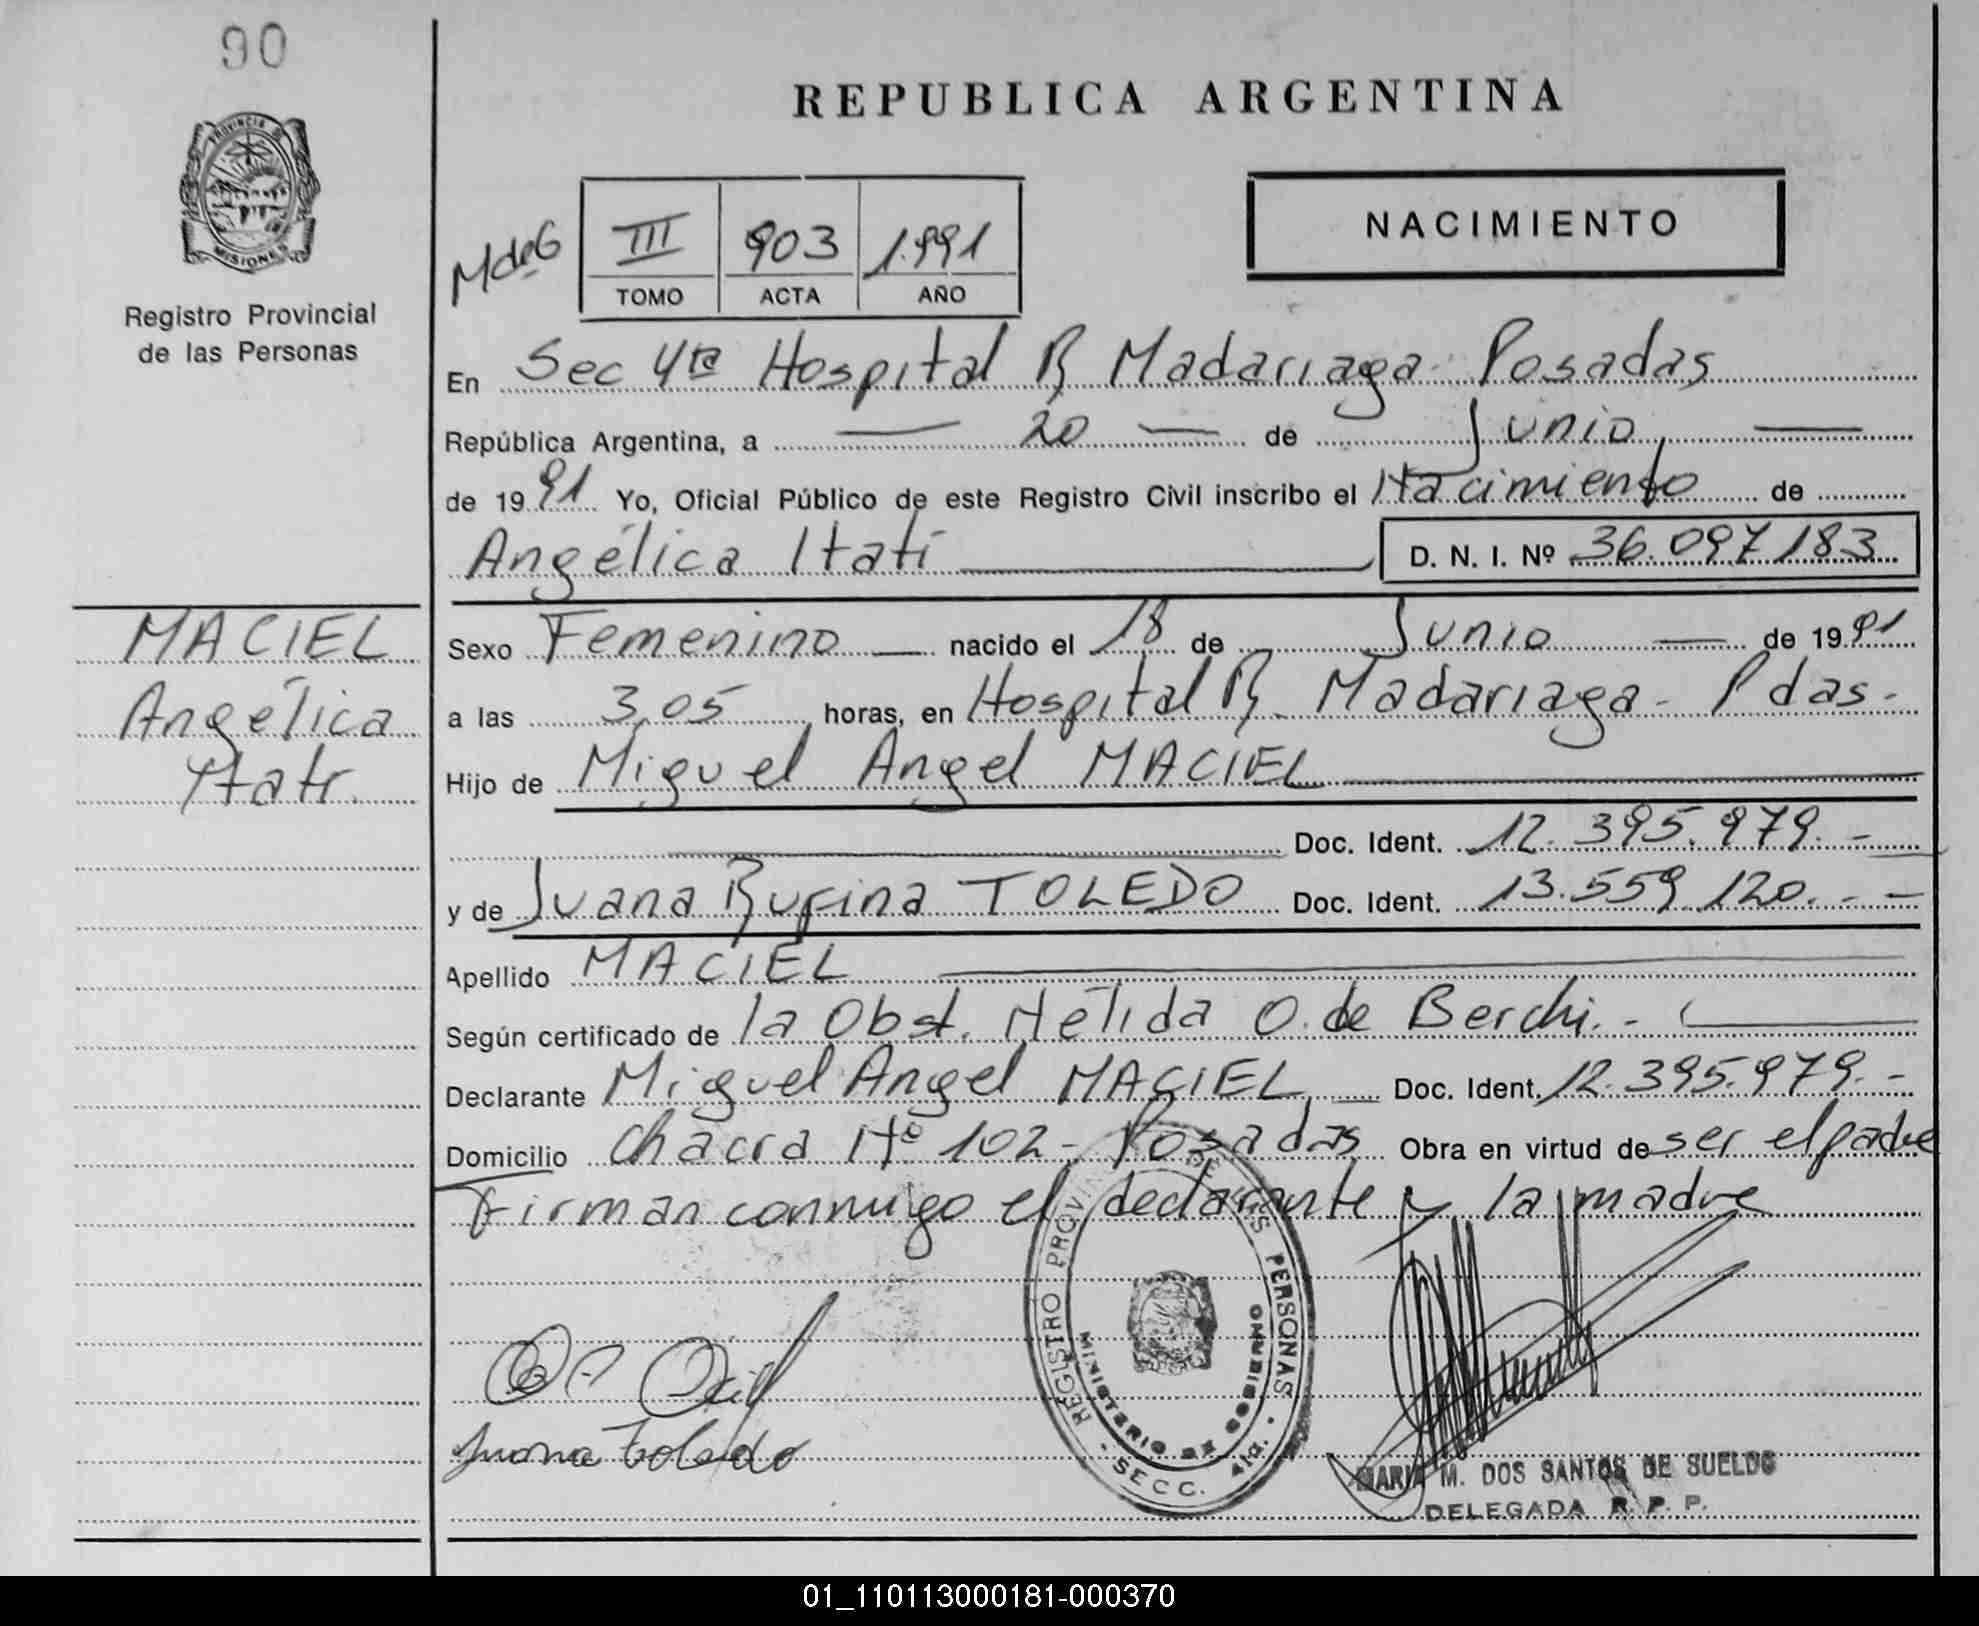 90
REPUBLICA ARGENTINA
PROVINCIA DE
MISIONES
Registro Provincial
de las Personas
MdeG
III 903 1.991
TOMO ACTA AÑO
NACIMIENTO
En Sec 4ta Hospital R Madariaga - Posadas
República Argentina, a — 20 — de Junio —
de 1991 Yo, Oficial Público de este Registro Civil inscribo el Nacimiento de
Angélica Itatí D. N. I. Nº 36.097.183
MACIEL
Angélica
Ytatí
Sexo Femenino — nacido el 18 de Junio — de 1991
a las 3,05 horas, en Hospital R. Madariaga - Pdas -
Hijo de Miguel Angel MACIEL
Doc. Ident. 12.395.979. -
y de Juana Rufina TOLEDO Doc. Ident. 13.559.120. - -
Apellido MACIEL
Según certificado de la Obst. Nélida O. de Berchi. -
Declarante Miguel Angel MACIEL Doc. Ident. 12.395.979. -
Domicilio Chacra Nº 102 - Posadas Obra en virtud de ser el padre
Firman conmigo el declarante y la madre
REGISTRO PROVINCIAL DE LAS PERSONAS
MINISTERIO DE GOBIERNO
SECC. 4ta.
Juana Toledo
MARIA M. DOS SANTOS DE SUELDO
DELEGADA R. P. P.
01_110113000181-000370